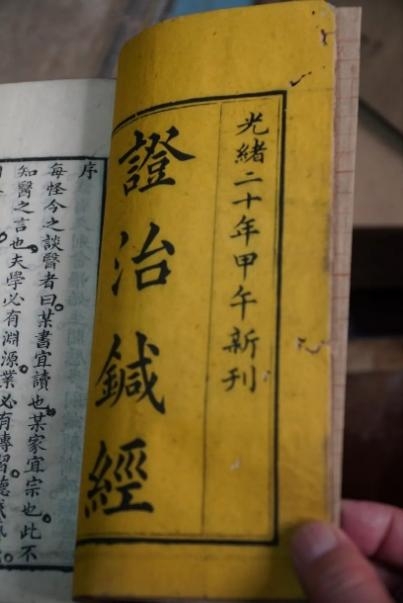 光緒二十年甲午新刊
證治鍼經
序
每怪今之談醫者曰某書宜讀也某家宜宗也此不
知醫之言也夫學必有淵源業必有傳習